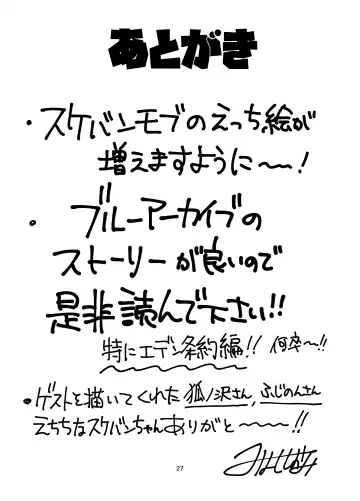 あとがき
・スケバンモブのえっち絵が
増えますように〜〜!
・ブルーアーカイブの
ストーリーが良いので
是非読んで下さい!!
特にエデン条約編!! 何卒〜!!
・ゲストを描いてくれた狐ノ沢さん、ふじのんさん
えちちなスケバンちゃんありがと〜〜〜!!
27